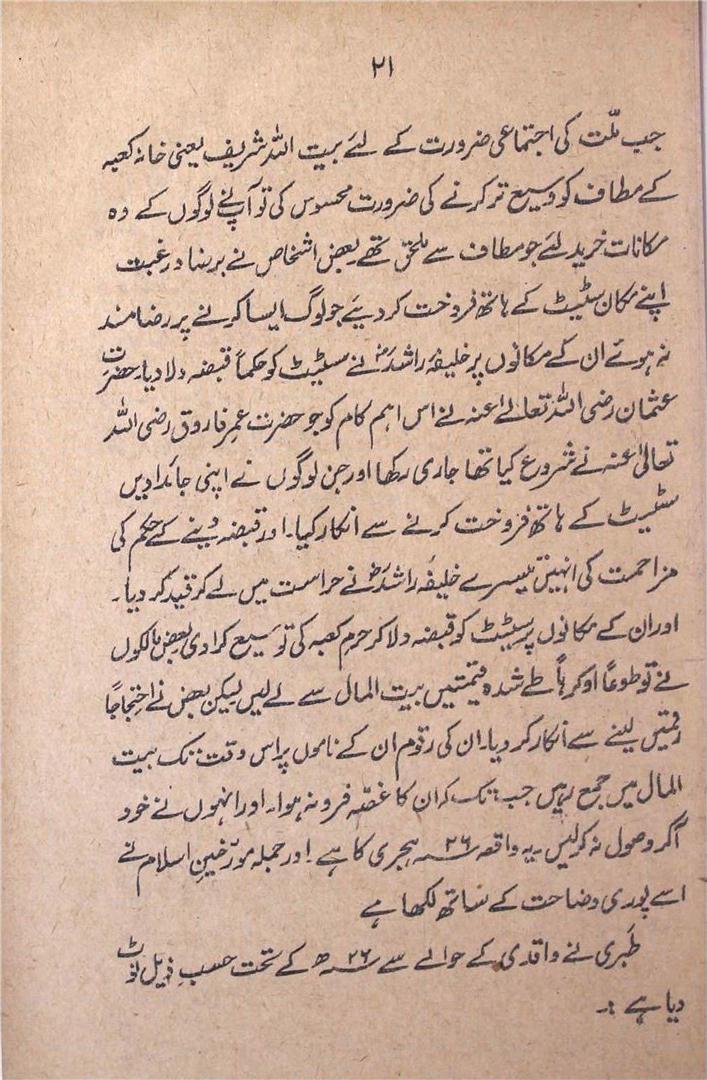 ۲۱
جب ملّت کی اجتماعی ضرورت کے لئے بیت اللہ شریف یعنی خانہ کعبہ
کے مطاف کو وسیع تر کرنے کی ضرورت محسوس کی تو آپ نے لوگوں کے وہ
مکانات خرید لئے جو مطاف سے ملحق تھے بعض اشخاص نے برضا و رغبت
اپنے مکان سٹیٹ کے ہاتھ فروخت کر دیئے جو لوگ ایسا کرنے پر رضامند
نہ ہوئے ان کے مکانوں پر خلیفہ راشدؓ نے سٹیٹ کو حکماً قبضہ دلا دیا۔ حضرت
عثمان رضی اللہ تعالےٰ عنہ نے اس اہم کام کو جو حضرت عمر فاروق رضی اللہ
تعالیٰ عنہ نے شروع کیا تھا جاری رکھا اور جن لوگوں نے اپنی جائدادیں
سٹیٹ کے ہاتھ فروخت کرنے سے انکار کیا۔ اور قبضہ دینے کے حکم کی
مزاحمت کی انہیں تیسرے خلیفہ راشدؓ نے حراست میں لے کر قید کر دیا۔
اور ان کے مکانوں پر سٹیٹ کو قبضہ دلا کر حرم کعبہ کی توسیع کرا دی بعض مالکوں
نے تو طوعاً او کرہاً طے شدہ قیمتیں بیت المال سے لے لیں لیکن بعض نے احتجاجاً
رقمیں لینے سے انکار کر دیا۔ ان کی رقوم ان کے ناموں پر اس وقت تک بیت
المال میں جمع رہیں جب تک کہ ان کا غصّہ فرو نہ ہوا۔ اور انہوں نے خود
آ کر وصول نہ کر لیں۔ یہ واقعہ ۲۶؁ ہجری کا ہے اور جملہ مورّخین اسلام نے
اسے پوری وضاحت کے ساتھ لکھا ہے
طبری نے واقدی کے حوالے سے ۲۶؁ ھ کے تحت حسب ذیل نوٹ
دیا ہے :۔